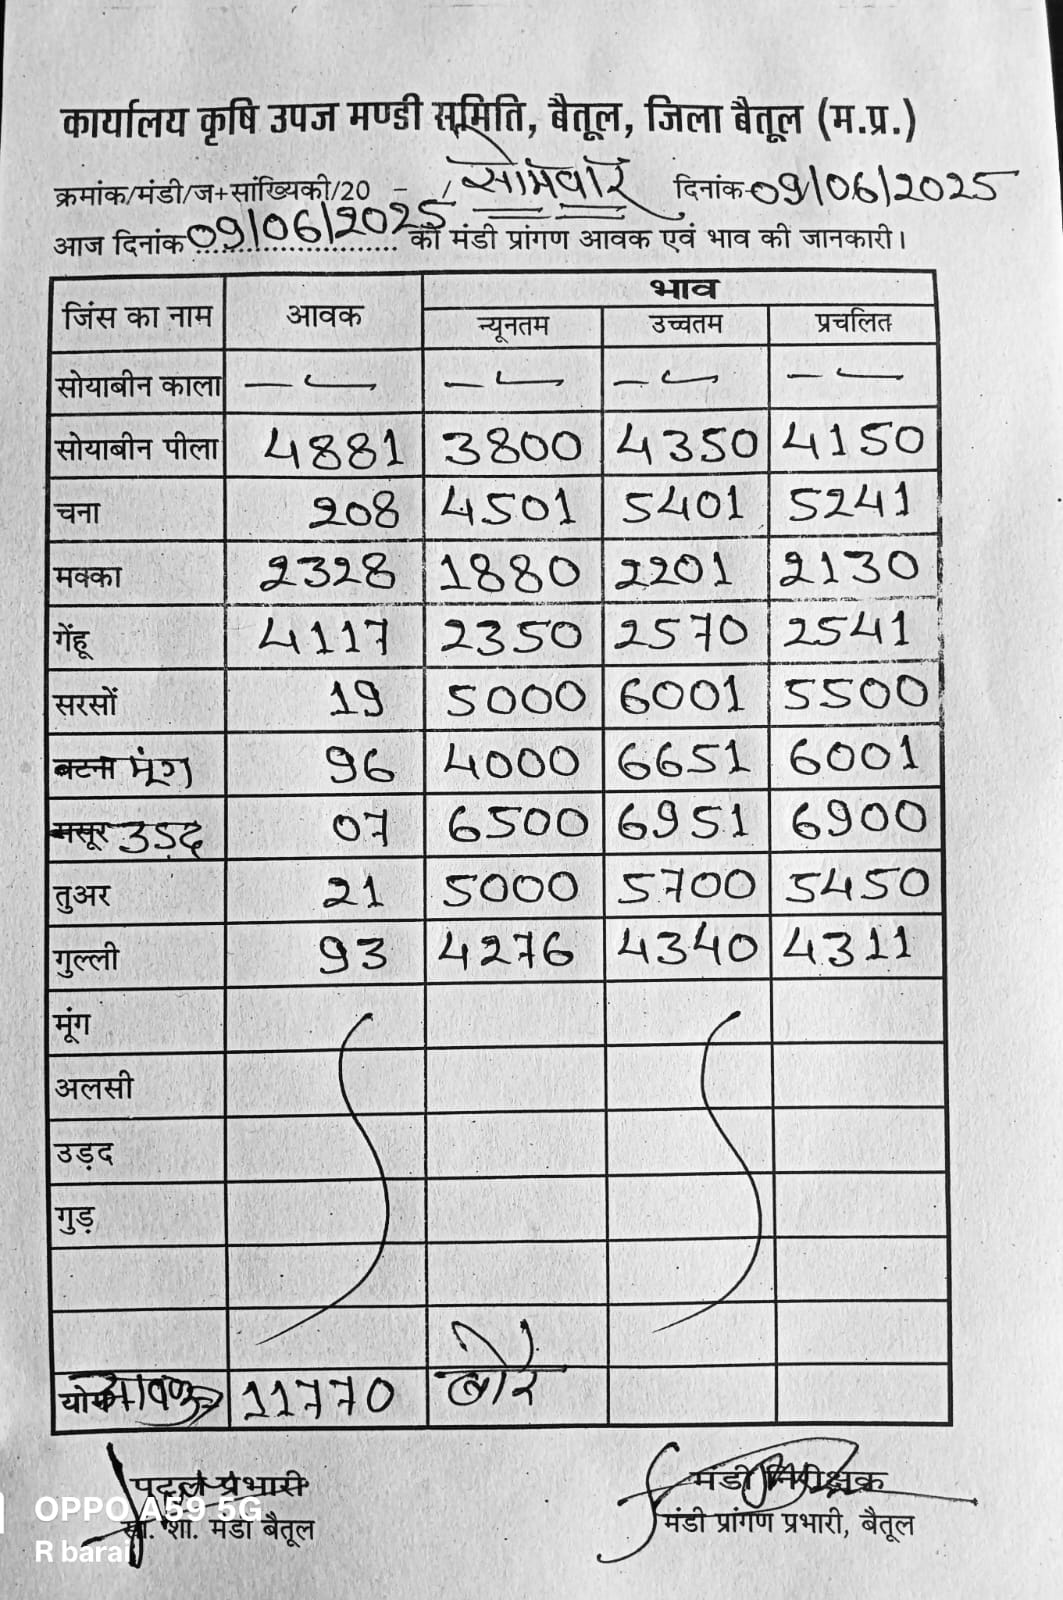 कार्यालय कृषि उपज मण्डी समिति, बैतूल, जिला बैतूल (म.प्र.)
क्रमांक/मंडी/ज+सांख्यिकी/20 - / सोमवार दिनांक 09/06/2025
आज दिनांक 09/06/2025 की मंडी प्रांगण आवक एवं भाव की जानकारी।
जिंस का नाम आवक भाव
न्यूनतम उच्चतम प्रचलित
सोयाबीन काला — — — —
सोयाबीन पीला 4881 3800 4350 4150
चना 208 4501 5401 5241
मक्का 2328 1880 2201 2130
गेंहू 4117 2350 2570 2541
सरसों 19 5000 6001 5500
बटना मूंग 96 4000 6651 6001
मसूर उड़द 07 6500 6951 6900
तुअर 21 5000 5700 5450
गुल्ली 93 4276 4340 4311
मूंग
अलसी
उड़द
गुड़
योग आवक 11770 बोरे
मंडी निरीक्षक
प्रभारी
मंडी प्रांगण प्रभारी, बैतूल
शा. मंडी बैतूल
OPPO A59 5G
R barai